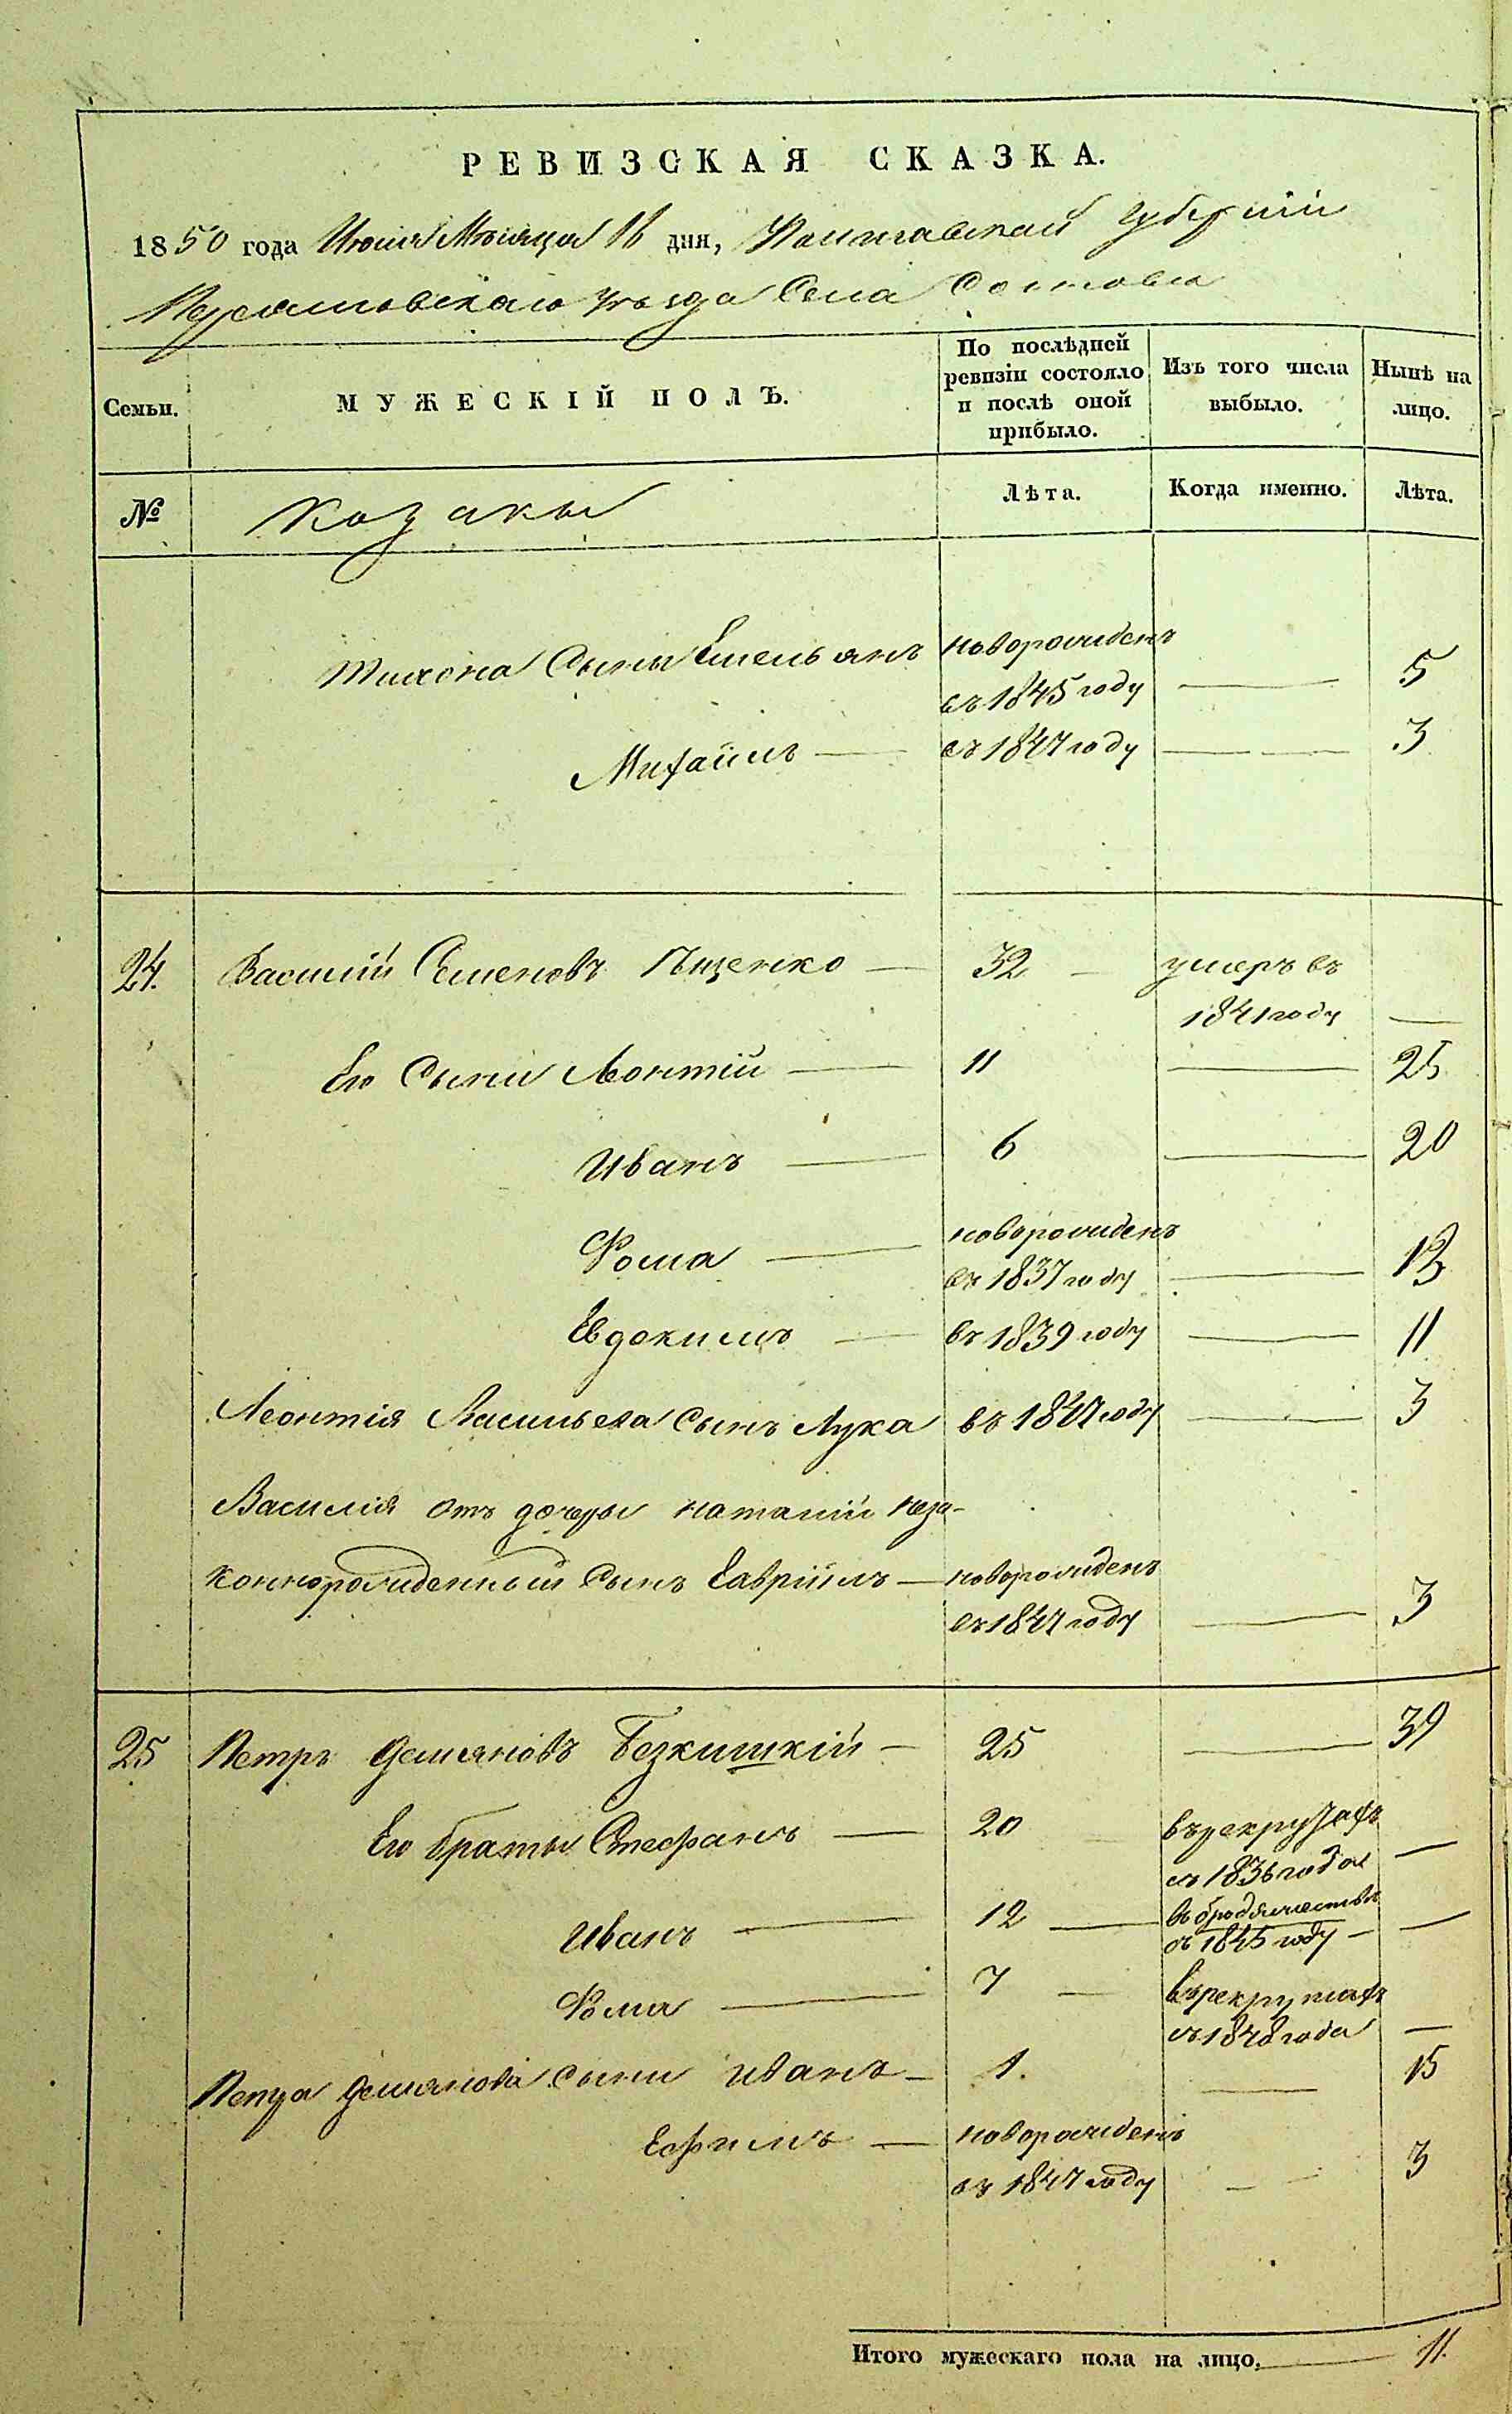 РЕВИЗСКАЯ СКАЗКА.
1850 года Июня Мѣсяца 16 дня, Полтавской Губернiи
Переяславскаго уѣзда Села
Семьи.
МУЖЕСКIЙ ПОЛЪ.
По послѣдней ревизiи состояло и послѣ оной прибыло.
Изъ того числа выбыло.
Нынѣ на лицо.
№
Козаки
Лѣта.
Когда именно.
Лѣта.
Тихона Сыны Емельянъ новорожденъ
въ 1845 году — 5
Михаилъ — въ 1847 году — 3
24. Василiй Семеновъ Пѣщенко — 32 — умеръ въ
1841 году —
Его Сыны Леонтiй — 11 — 25
Иванъ — 6 — 20
Фома — новорожденъ
въ 1837 году — 13
Евдокимъ — въ 1839 году — 11
Леонтiя Васильева Сынъ Лука въ 1847 году — 3
Василiя отъ дочери Наталiи неза-
коннорожденный Сынъ Гаврiилъ — новорожденъ
въ 1847 году — 3
25 Петръ Демяновъ Безкишкiй — 25 — 39
Его братья Стефанъ — 20 въ рекрутахъ
съ 1836 года —
Иванъ — 12 — въ бродяжествѣ
съ 1845 году — —
Фома — 7 — въ рекрутахъ
съ 1848 года —
Петра Демянова сыны Иванъ — 1. — 15
Ефимъ — новорожденъ
въ 1847 году — 3
Итого мужескаго пола на лицо, — 11.